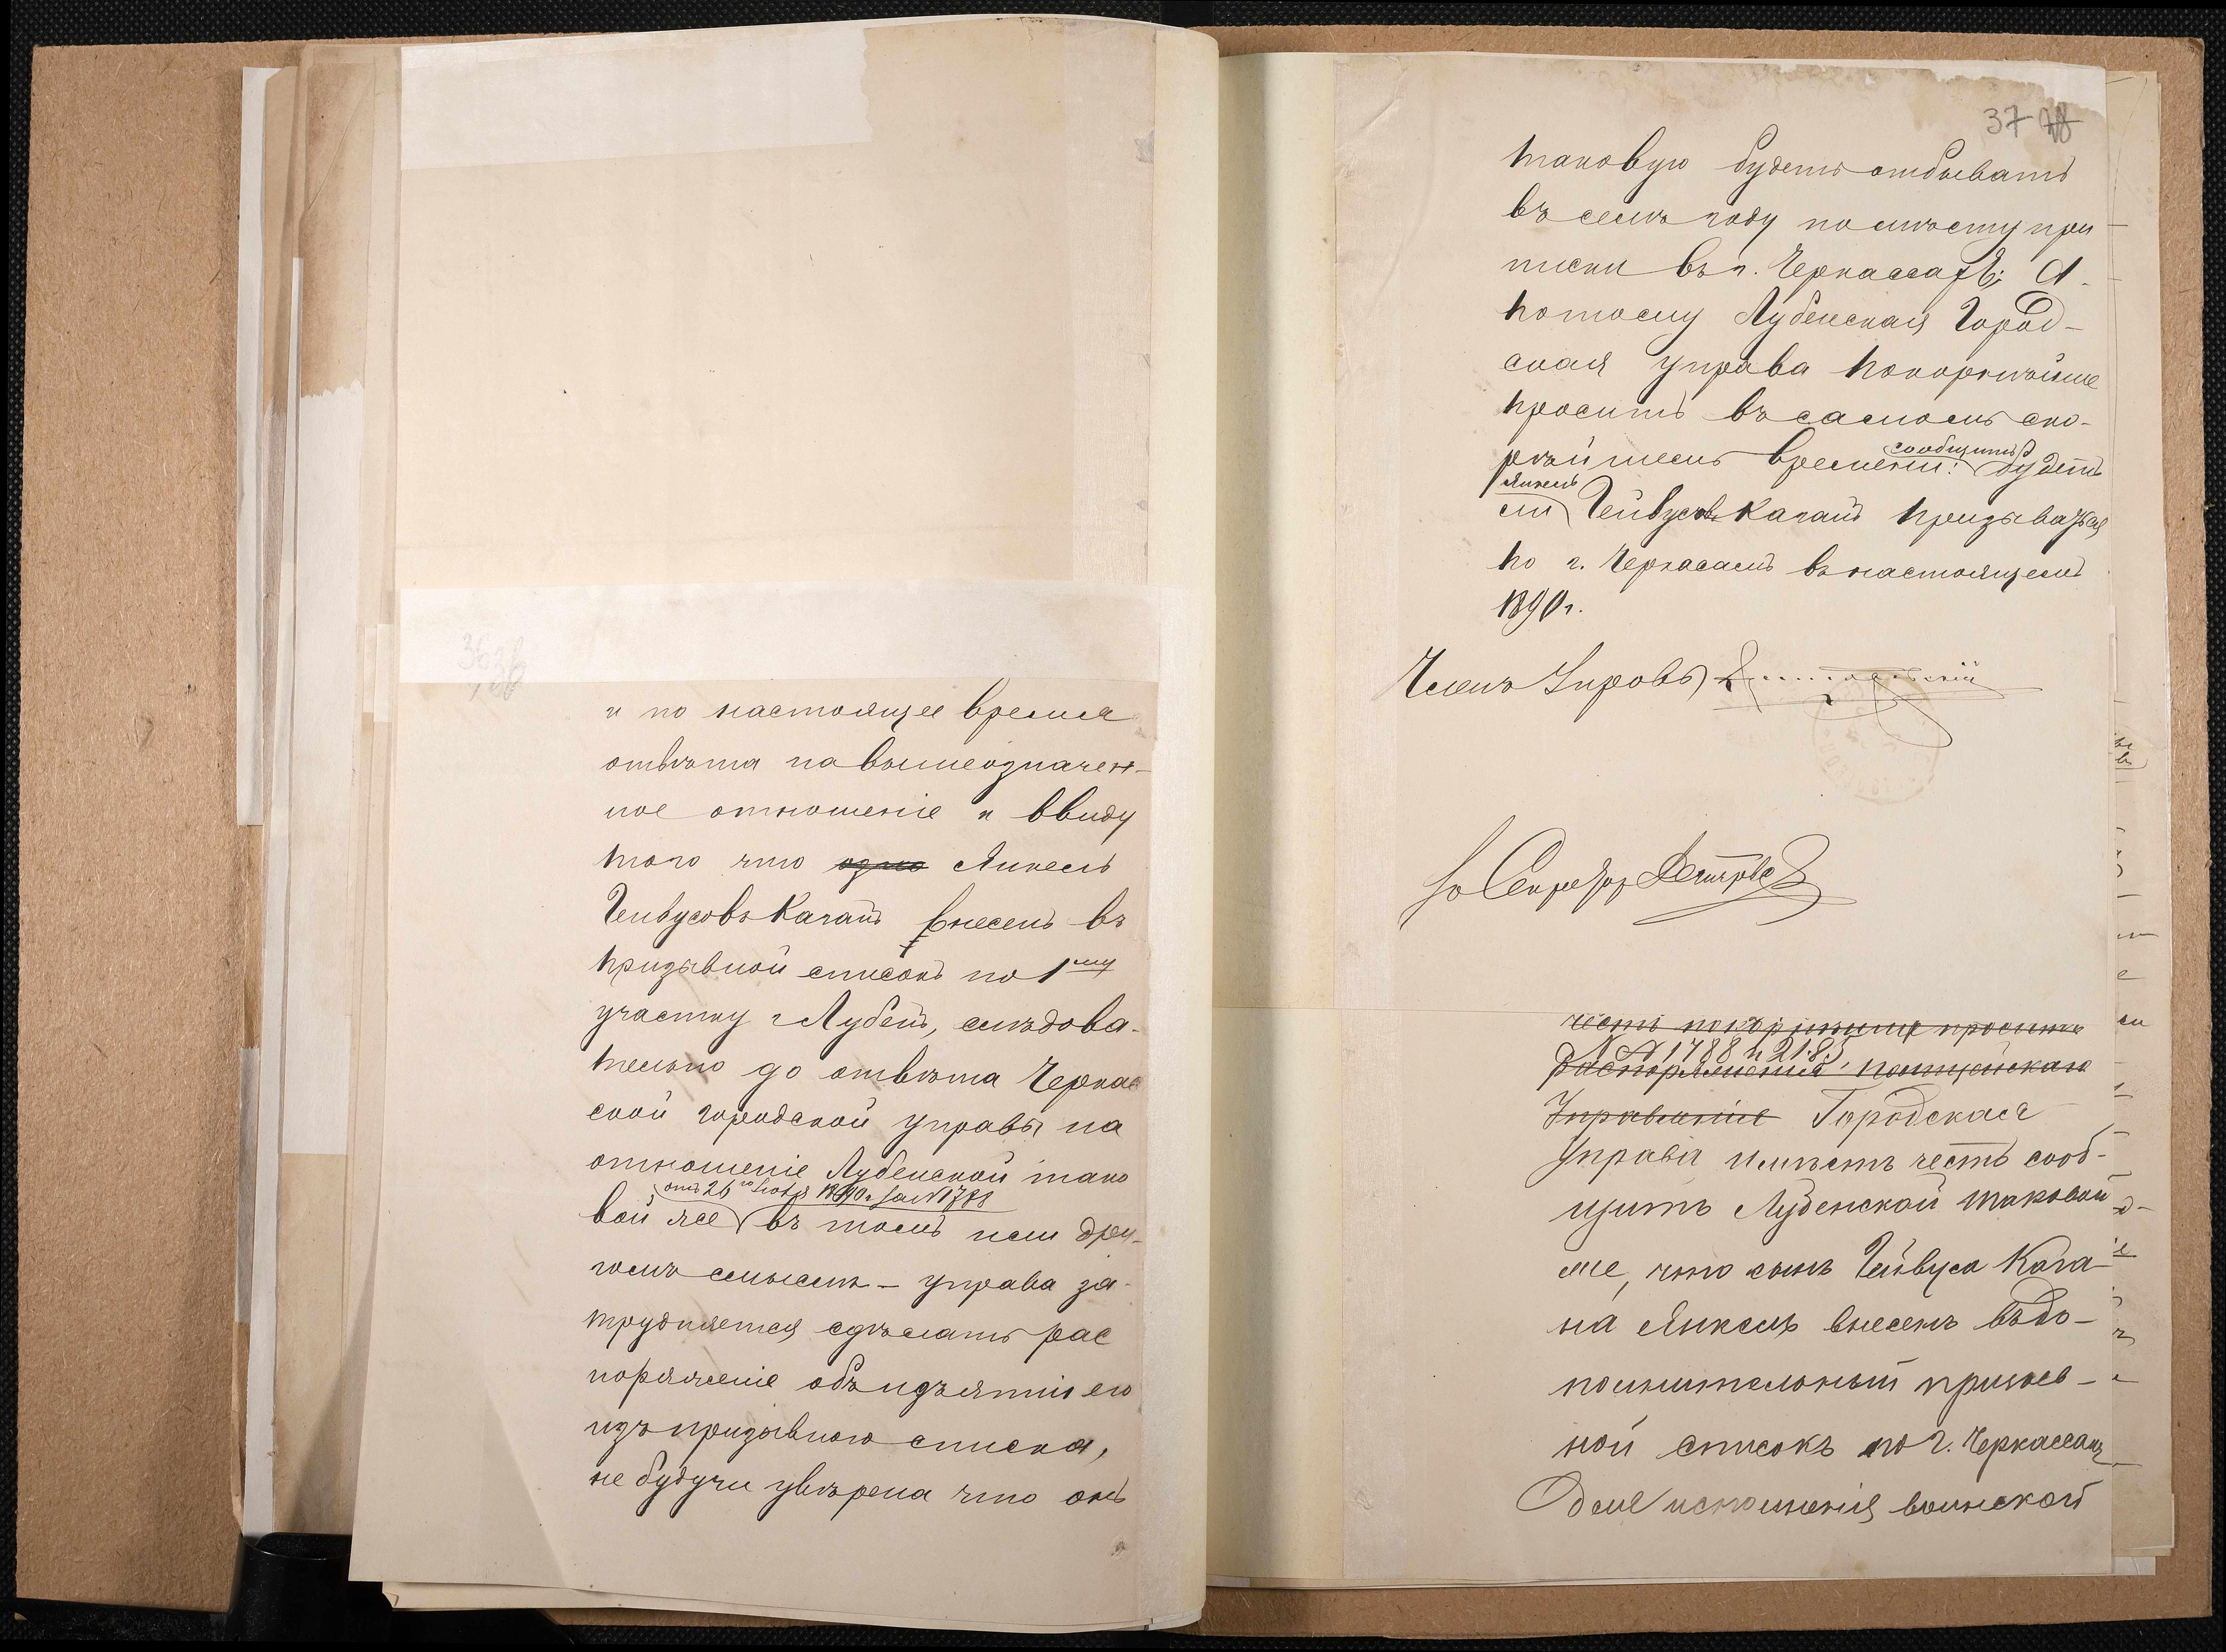 и по настоящее время
ответа на вышеозначен-
ное отношеніе и ввиду
того что одно Янкель
Гейвусовъ Каганъ внесенъ въ
призывной списокъ по 1му
участку г Лубенъ, слѣдова-
тельно до отвѣта Черкас
ской городской управы на
отношеніе Лубенской тако
отъ 26го 1890 г за N 1788
вой же въ томъ или дру-
гомъ смыслѣ – управа за-
трудняется сдѣлать рас
поряженіе объ изъятіи его
изъ призывного списка,
не будучи увѣрена что онъ
37
таковую будетъ отбывать
въ семъ году по мѣсту при-
писки въ г. Черкассахъ; А
потому Лубенская Город-
ская управа покорнѣйше
проситъ въ самомъ ско-
сообщить
рѣйшемъ времени: будетъ
Янкель
ли Гейвусовъ Каганъ призываться
по г. Черкасамъ въ настоящемъ
1890 г.
Членъ Управы
Секретарь
честь покорнѣйше проситъ
N N 1788 и 2185
распоряженія полицейскаго
Управленіе Городская
Управа имѣетъ честь сооб-
щить Лубенской таковой
же, что сынъ Гейвуса Кага-
на Янкель внесенъ въ до-
полнительный призыв-
ной списокъ по г. Черкассамъ
для исполненія воинской